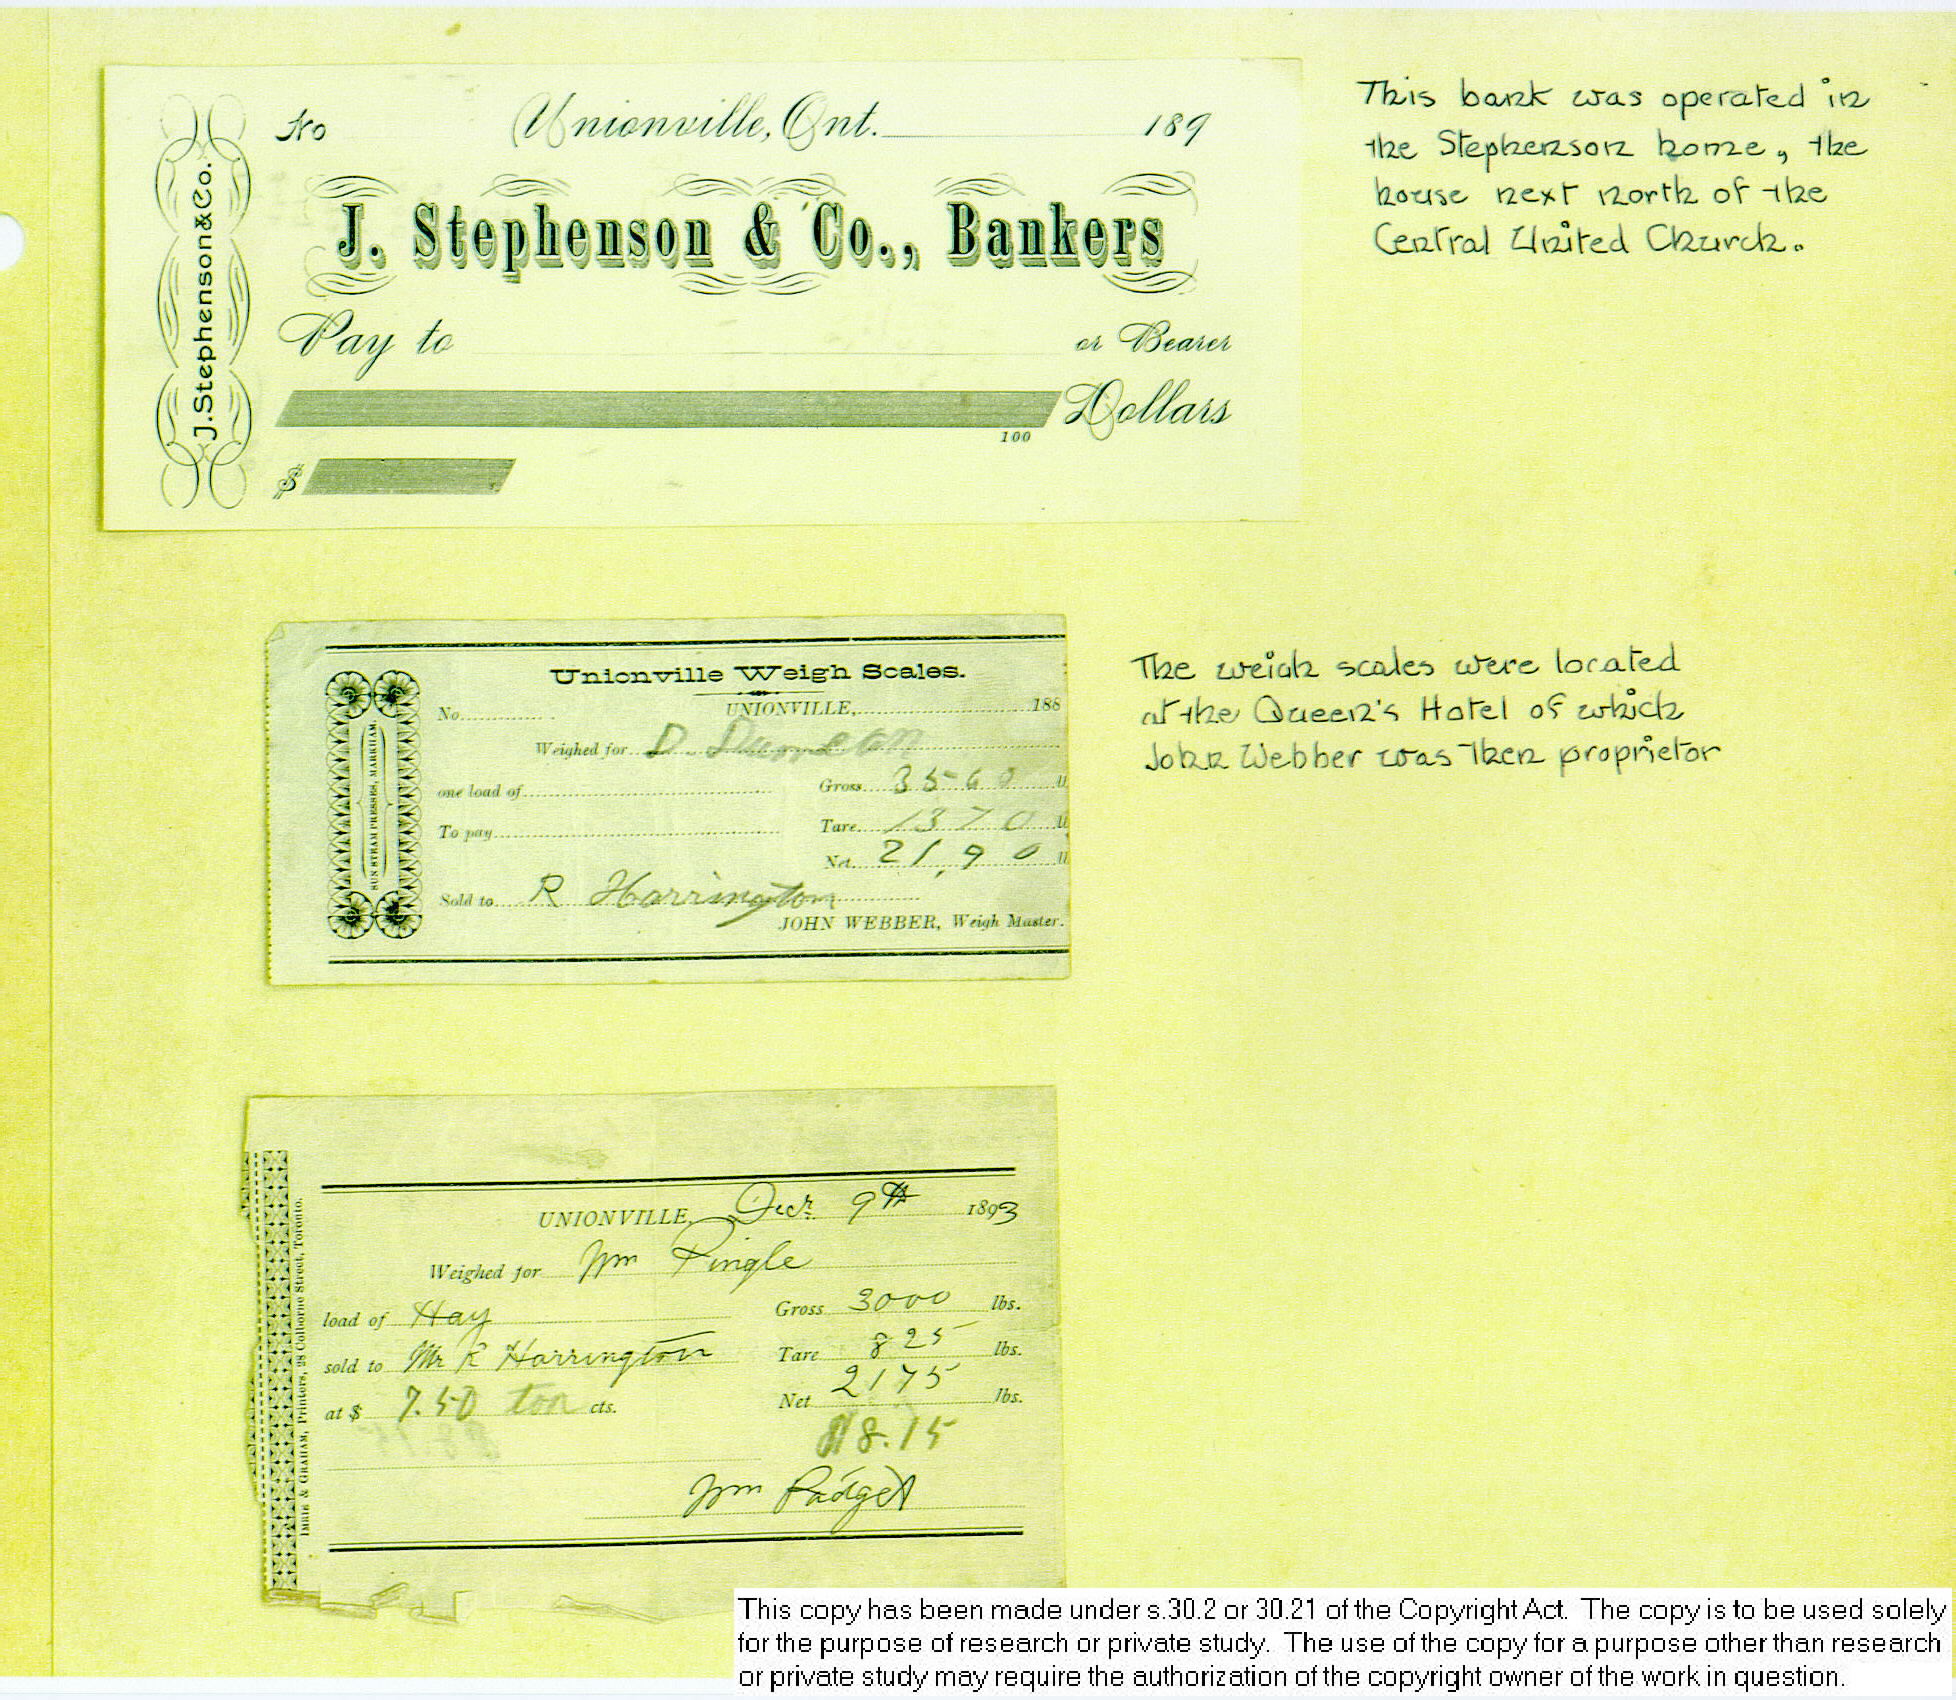 No Unionville, Ont. 189
J. Stephenson & Co.
J. Stephenson & Co., Bankers
Pay to or Bearer
Dollars
100
$
This bank was operated in
the Stephenson home, the
house next north of the
Central United Church.
Unionville Weigh Scales.
No. UNIONVILLE, 188
Weighed for D.
one load of Gross 3560
To pay Tare 1370
Net 2190
Sold to R Harrington
JOHN WEBBER, Weigh Master.
SUN STEAM PRESSES, MARKHAM.
The weigh scales were located
at the Queen's Hotel of which
John Webber was then proprietor
UNIONVILLE, Decr. 9th 1893
Weighed for Wm Pingle
load of Hay Gross 3000 lbs.
sold to Mr R Harrington Tare 825 lbs.
at $ 7.50 ton cts. Net 2175 lbs.
$8.15
Wm Padget
IMRIE & GRAHAM, Printers, 28 Colborne Street, Toronto.
This copy has been made under s.30.2 or 30.21 of the Copyright Act. The copy is to be used solely
for the purpose of research or private study. The use of the copy for a purpose other than research
or private study may require the authorization of the copyright owner of the work in question.